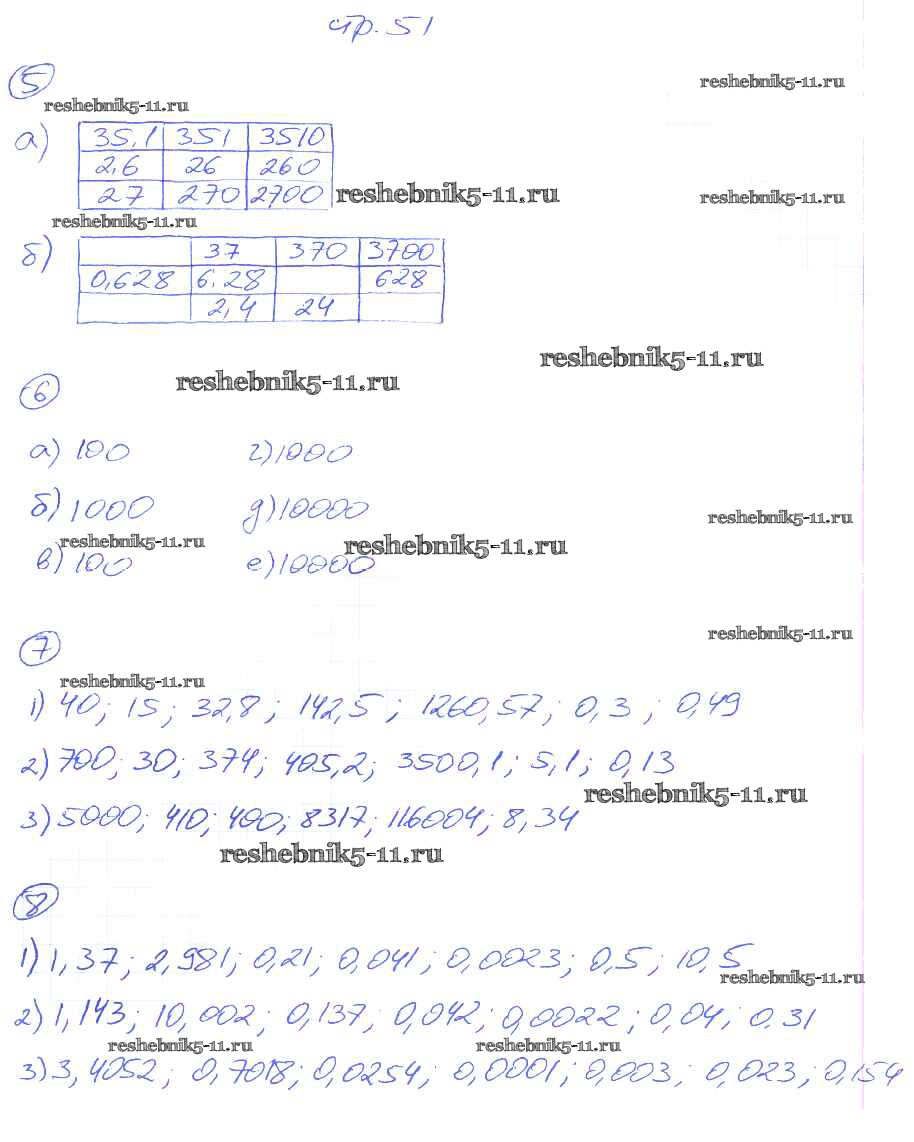 стр. 51
5
reshebnik5-11.ru
reshebnik5-11.ru
а) 35,1 351 3510
2,6 26 260
27 270 2700
reshebnik5-11.ru
reshebnik5-11.ru
reshebnik5-11.ru
б) 37 370 3700
0,628 6.28 628
2,4 24
reshebnik5-11.ru
reshebnik5-11.ru
6
а) 100 г) 1000
б) 1000 д) 10000
reshebnik5-11.ru
reshebnik5-11.ru
reshebnik5-11.ru
в) 100 е) 10000
7
reshebnik5-11.ru
reshebnik5-11.ru
1) 40; 15; 32,8; 142,5; 1260,57; 0,3; 0,49
2) 700; 30; 374; 405,2; 3500,1; 5,1; 0,13
reshebnik5-11.ru
3) 5000; 410; 400; 8317; 116004; 8,34
reshebnik5-11.ru
8
1) 1,37; 2,981; 0,21; 0,041; 0,0023; 0,5; 10,5
reshebnik5-11.ru
2) 1,143; 10,002; 0,137; 0,042; 0,0022; 0,04; 0.31
reshebnik5-11.ru
reshebnik5-11.ru
3) 3,4052; 0,7018; 0,0254; 0,0001; 0,003; 0,023; 0,154